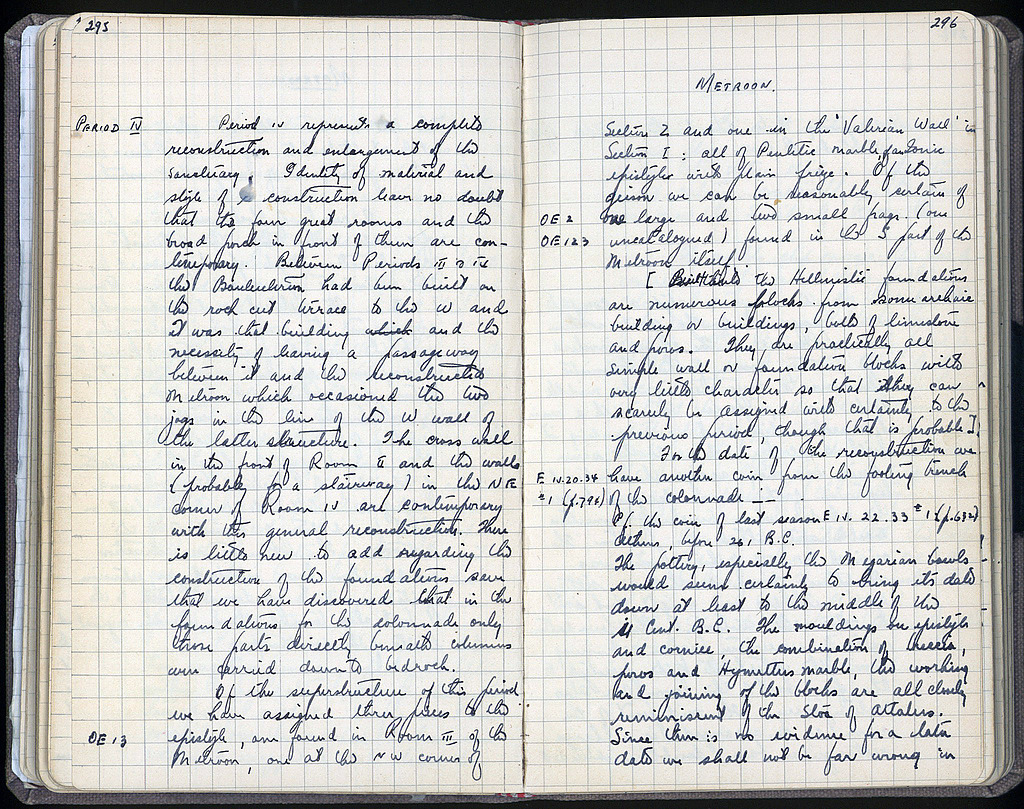 295
PERIOD IV Period IV represents a complete
reconstruction and enlargement of the
sanctuary. Identity of material and
style of construction leave no doubt
that the four great rooms and the
broad porch in front of them are con-
temporary. Between Periods III & IV
the Bouleuterion had been built on
the rock cut terrace to the W and
it was that building which and the
necessity of leaving a passageway
between it and the reconstructed
Metroon which occasioned the two
jogs in the line of the W wall of
the latter structure. The cross wall
in the front of Room II and the walls
(probably for a stairway) in the NE
corner of Room IV are contemporary
with this general reconstruction. There
is little new to add regarding the
construction of the foundations save
that we have discovered that in the
foundations for the colonnade only
those parts directly beneath columns
were carried down to bedrock.
Of the superstructure of this period
we have assigned three pieces to the
OE 13 epistyle, one found in Room III of the
Metroon, one at the NW corner of
296
METROON.
Section Z and one in the 'Valerian Wall' in
Section I: all of Pentelic marble, for Ionic
epistyle with plain frieze. Of the
geison we can be reasonably certain of
OE 2 one large and two small frags. (one
OE 123 uncatalogued) found in the S part of the
Metroon itself.
[ Built into the Hellenistic foundations
are numerous blocks from some archaic
building or buildings, both of limestone
and poros. They are practically all
simple wall or foundation blocks with
very little character so that they can
scarcely be assigned with certainty to the
previous period, though that is probable].
For the date of the reconstruction we
E IV.20.34 have another coin from the footing trench
#1 (p.796) of the colonnade
Cf. the coin of last season E IV. 22.33 #1 (p.632)
Athens, before 261 B.C.
The pottery, especially the Megarian bowls
would seem certainly to bring its date
down at least to the middle of the
II Cent. B.C. The mouldings on epistyle
and cornice, the combination of breccia,
poros and Hymettus marble, the working
and joining of the blocks are all closely
reminiscent of the Stoa of Attalos.
Since there is no evidence for a later
date we shall not be far wrong in